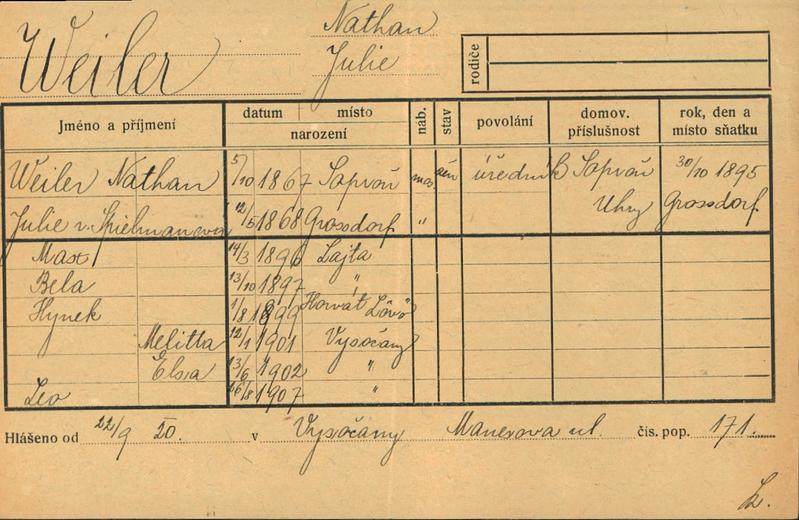 Weiler Nathan
Julie
rodiče
Jméno a příjmení datum místo narození náb. stav povolání domov. příslušnost rok, den a místo sňatku
Weiler Nathan 5/10 1867 Soproň mos. žen úředník Soproň 30/10 1895
Julie r. Spielmanova 12/5 1868 Grossdorf " Uhry Grossdorf
Max 14/3 1896 Lajta
Bela 13/10 1897 "
Hynek 1/8 1899 Horvát Lövö
Melitta 12/1 1901 Vysočany
Elsa 13/6 1902 "
Leo 26/8 1907 "
Hlášeno od 22/9 20. v Vysočany Manesova ul. čís. pop. 171.